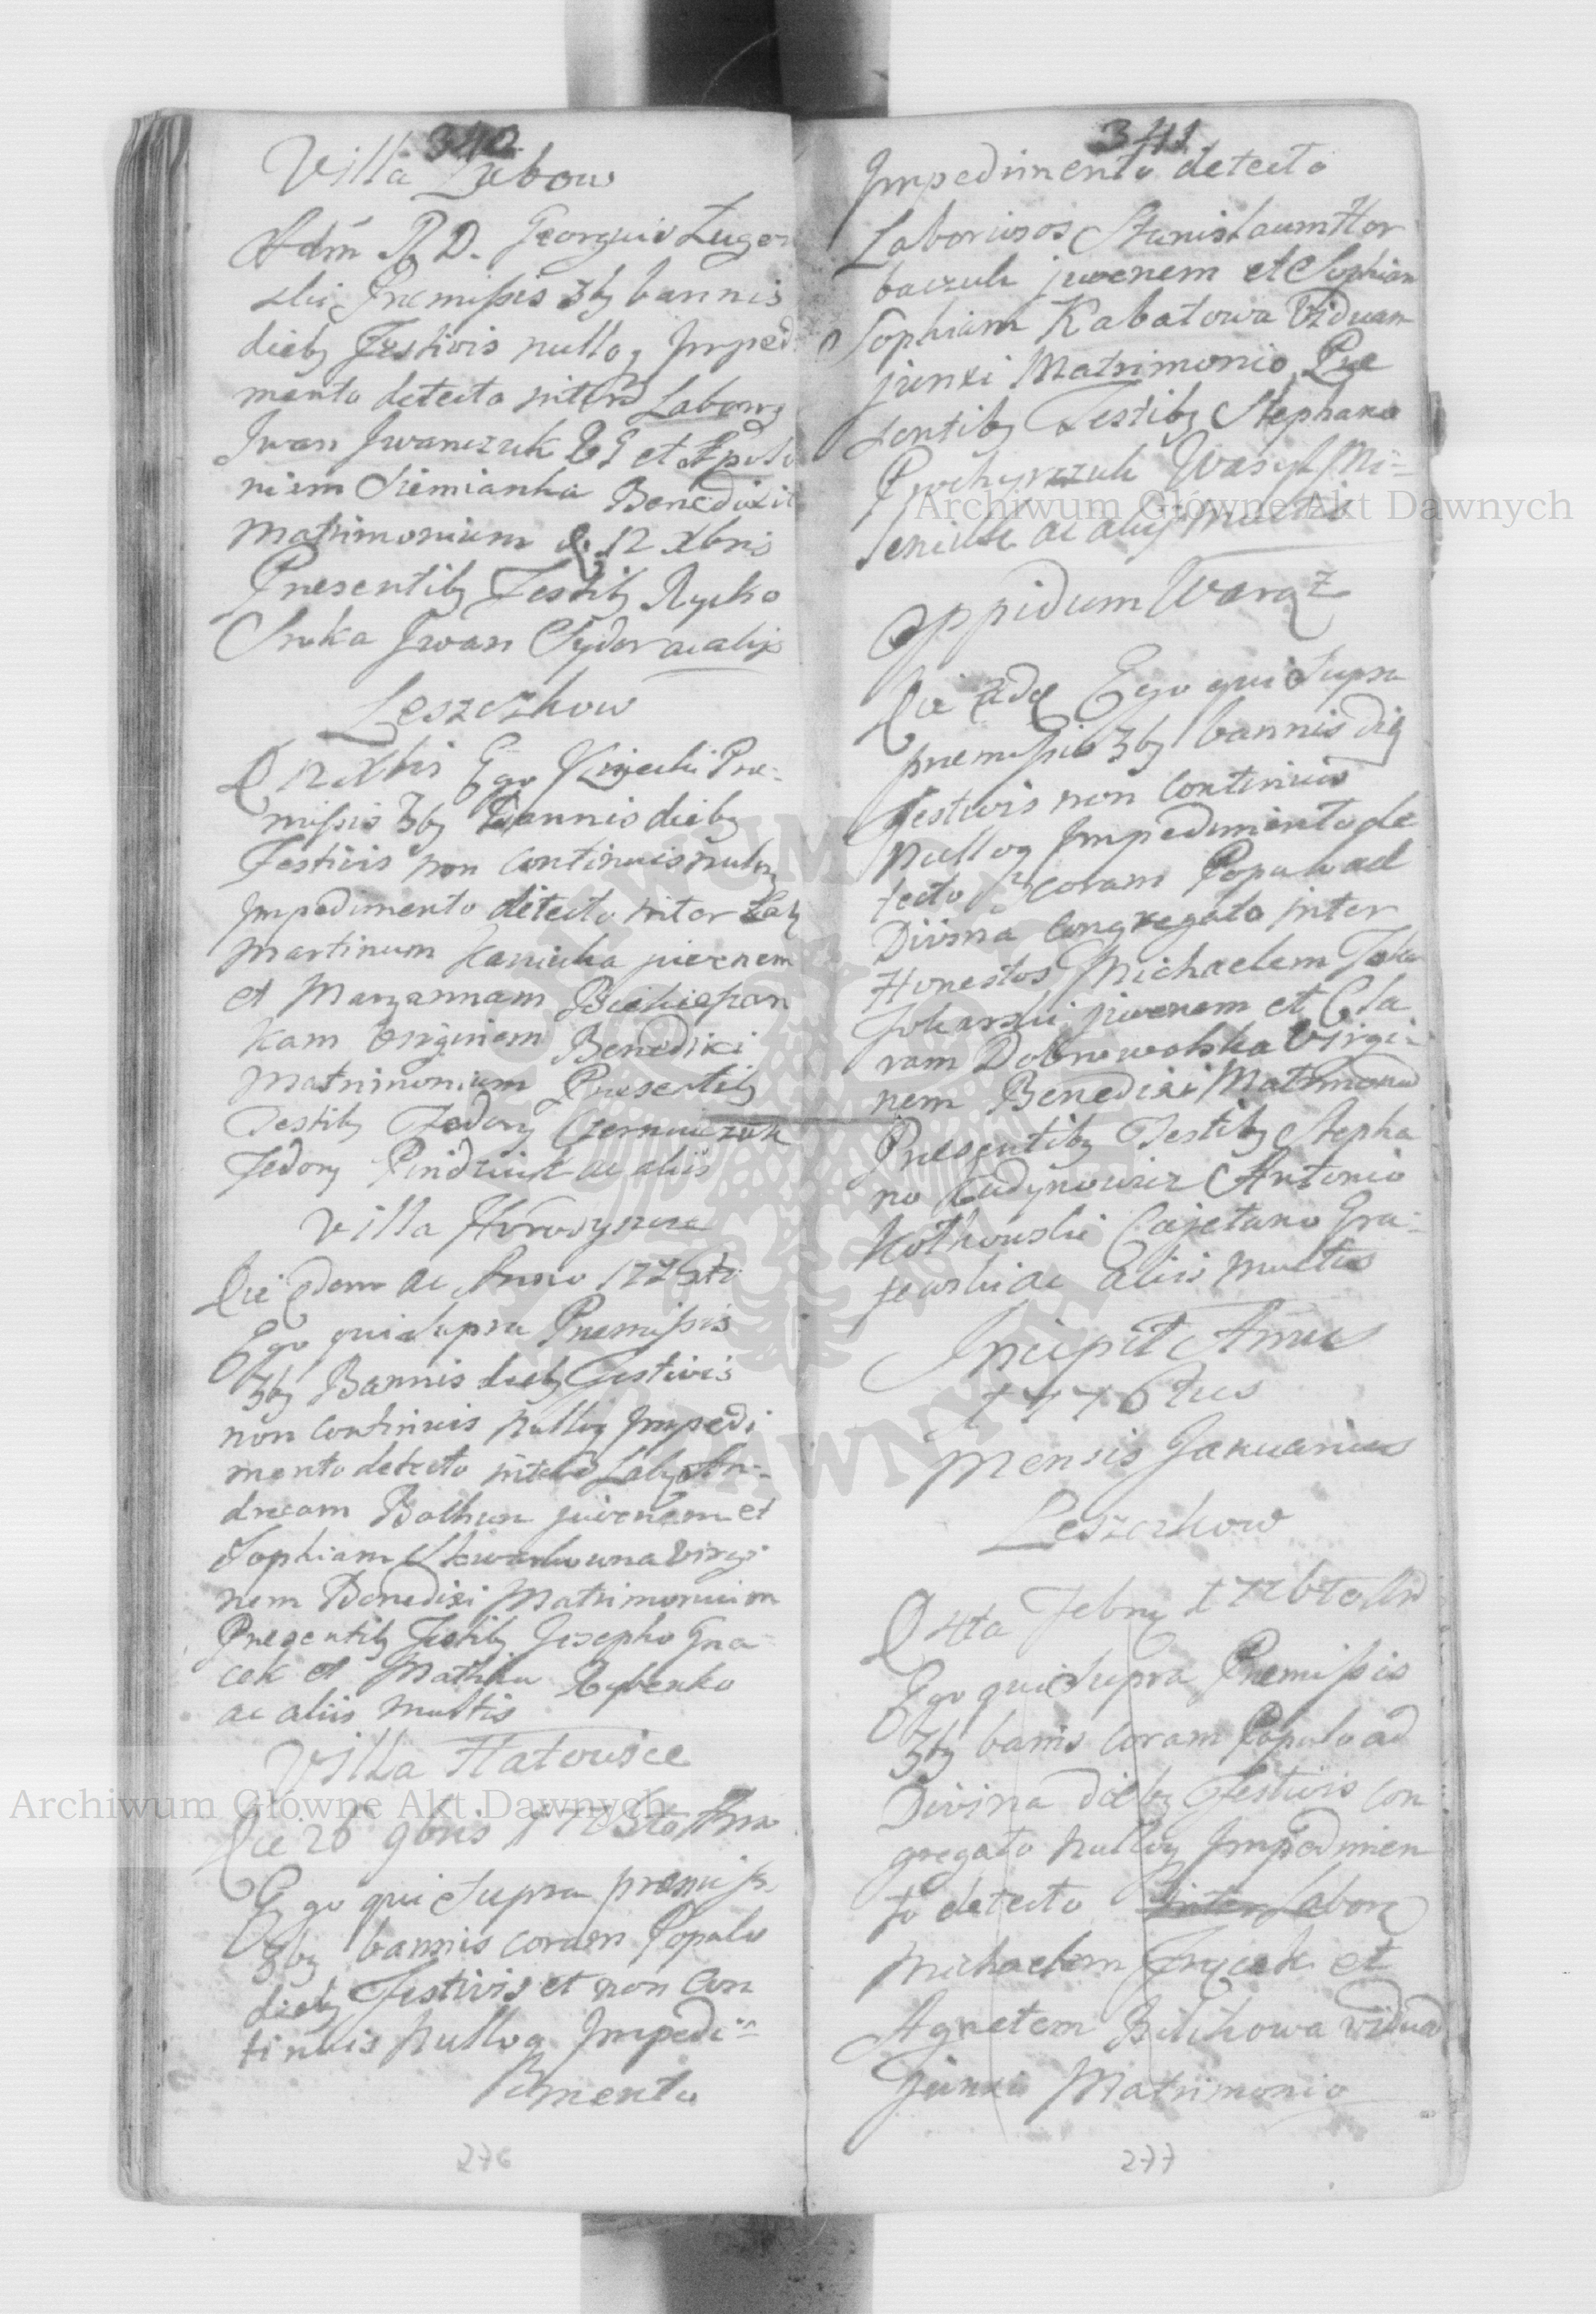 340
Villa Lubow
Adm R. D. Georgius Luger
ski Premissis 3bg bannis
diebg Festivis nullog Imped
mento detecto inter Laborg
Iwan Iwanczuk et Apolo
niem Siemianka Benedixit
Matrimonium d. 12 Xbris
Presentibg Testibg Rycko
Iwan Sydor ac alijs
Leszczkow
D 12 Xbris Ego Pre-
missis 3bg Bannis diebg
Festivis non continuis nulog
Impedimento detecto inter Labg
Martinum Kaniuka juvenem
et Maryannam
kam Virginem Benedixi
Matrimonium Presentibg
Testibg Fedorg Czerniuczuk
Fedorg ac aliis
Villa Horodyszcze
Die Edem ac Anno 1775to
Ego qui Supra Premissis
3bg Bannis diebg Festivis
non continuis nullog Impedi
mento detecto inter Labg An-
dream Balhun juvenem et
Sophiam virgi
nem Benedixi Matrimonium
Presentibg Testibg Josepho Gna
cek et Mathia Rybenko
ac aliis multis
Villa Hatowice
Die 26 9bris 1775to Ann
Ego qui Supra premiss
3bg bannis coram Populo
diebg Festivis et non Con
tinuis Nullog Impedi-
mento
276
341
Impedimento detecto
Laboriosos Stanislaum Hor
baczuk juvenem et Sophiam
Sophiam Kabatowa Viduam
junxi Matrimonio Pre
sentibg Testibg Stephano
Wasyl Mi-
ac alijs Multis
Oppidum Waręz
Die Ego qui Supra
premissis 3bg bannis dieb
Festivis non Continuis
Nullog Impedimento de
tecto coram Populo ad
Divina congregato inter
Honestos Michaelem
Tokarski juvenem et Cla
ram Dobrowolska Virgi-
nem Benedixi Matrimoniu
Presentibg Testibg Stepha
no Budynowicz Antonio
Kotkowski Cajetano Gra-
jewski ac aliis multis
Incipit Annus
1776tus
Mensis Januarius
Leszczkow
D 4ta Febrg 1776to And
Ego qui Supra Premissis
3bg banis Coram Populo ad
Divina diebg Festivis con
gregato Nullog Impedimen
to detecto inter Laborg
Michaelem et
Agnetem Bilikowa viduā
Junxi Matrimonio
277
Archiwum Główne Akt Dawnych
Archiwum Główne Akt Dawnych